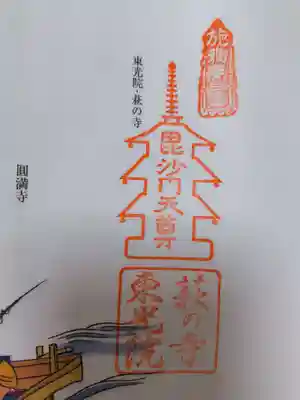 東光院・萩の寺
毘沙門天尊
萩の寺
東光院
圓満寺